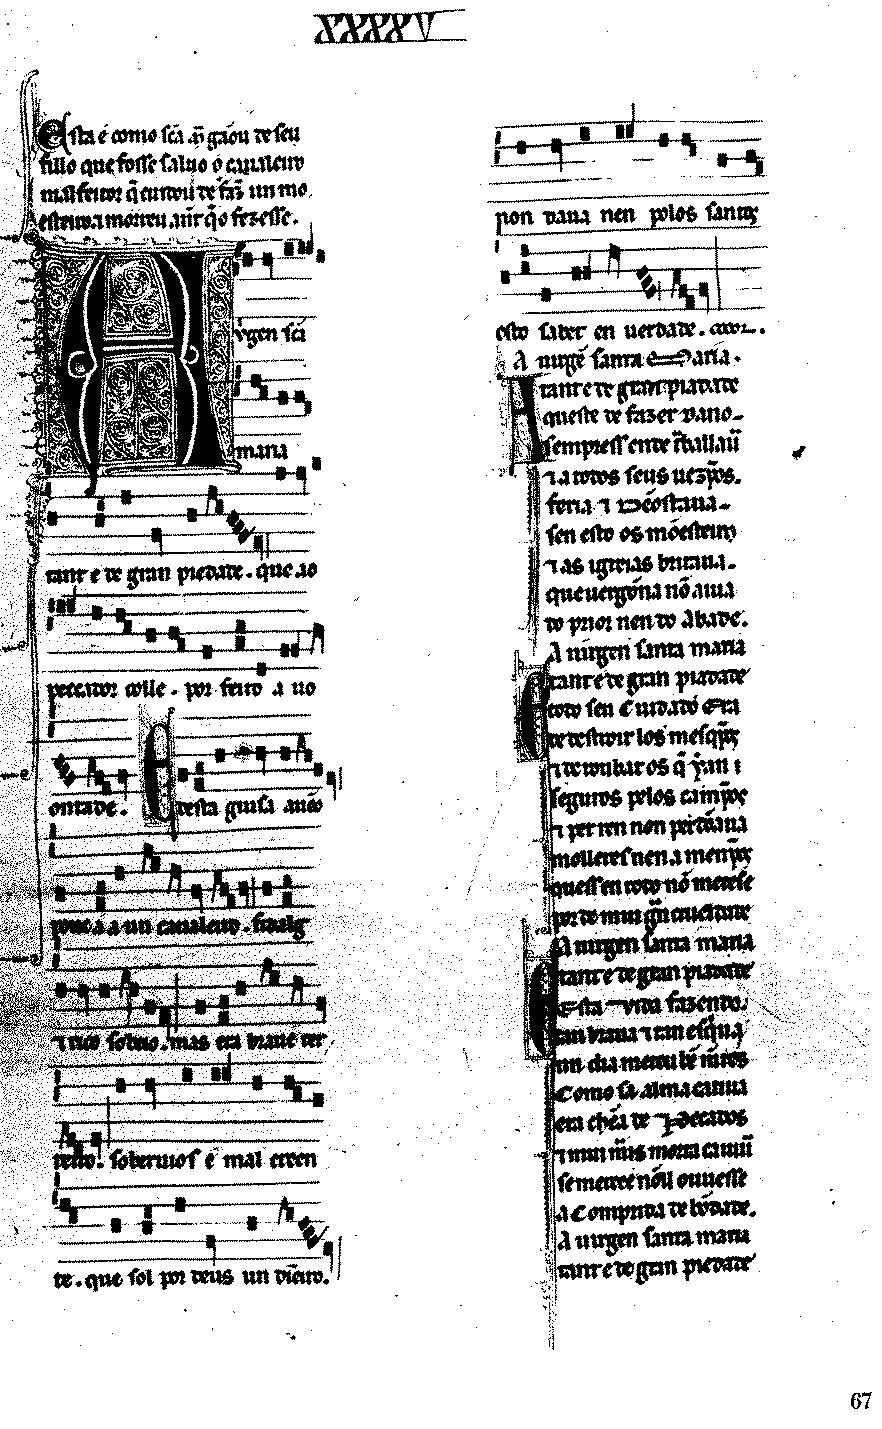 XXXXV
Esta é como sc̃a m̃ gãou de seu
fillo que fosse saluo o caualeiro
malfeitor q̃ cuidou de faz̃ un mo
esteiro. a morreu ant q̃ o fezesse.
A
uirgen sc̃a
maria
tant e de gran piedade. que ao
peccador colle. por feito a uo
ontade. E desta guisa auẽo
pouc á a un caualeiro. fidalg
τ rico sobeio. mas era braue ter
reiro. soberuios e mal creen
te. que sol por deus un diñeiro.
non daua nen polos santos
esto saber en uerdade.
A uirgẽ santa Maria.
tant e de gran piadade
queste de fazer dano
sempress ent e traballaũ
τ a todos seus uezỹos.
feria τ
sen esto os mõesteiros
τ as igreias britaua.
que uergonna nõ auia
do prior nen do Abade.
A uirgen santa maria
tant e de gran piadade
Todo seu Cuidado Era
de destroir los mesqỹos
τ de roubar os q̃ yan
seguros pelos camỹos
τ per ren non perdõaua
molleres nen a menỹos
quess en todo nõ metesse
por de mui gran crueldade
A uirgen santa maria
tant e de gran piadade
Esta uida fazendo.
tan braua τ tan esqua
un dia meteu bẽ mẽtes
Como sa alma catiua
era chẽa de Pecados
τ mui mais morta ca uiua
se mercee nõll ouuesse
a Comprida de bõdade.
A uirgen santa maria
tant e de gran piedade
67